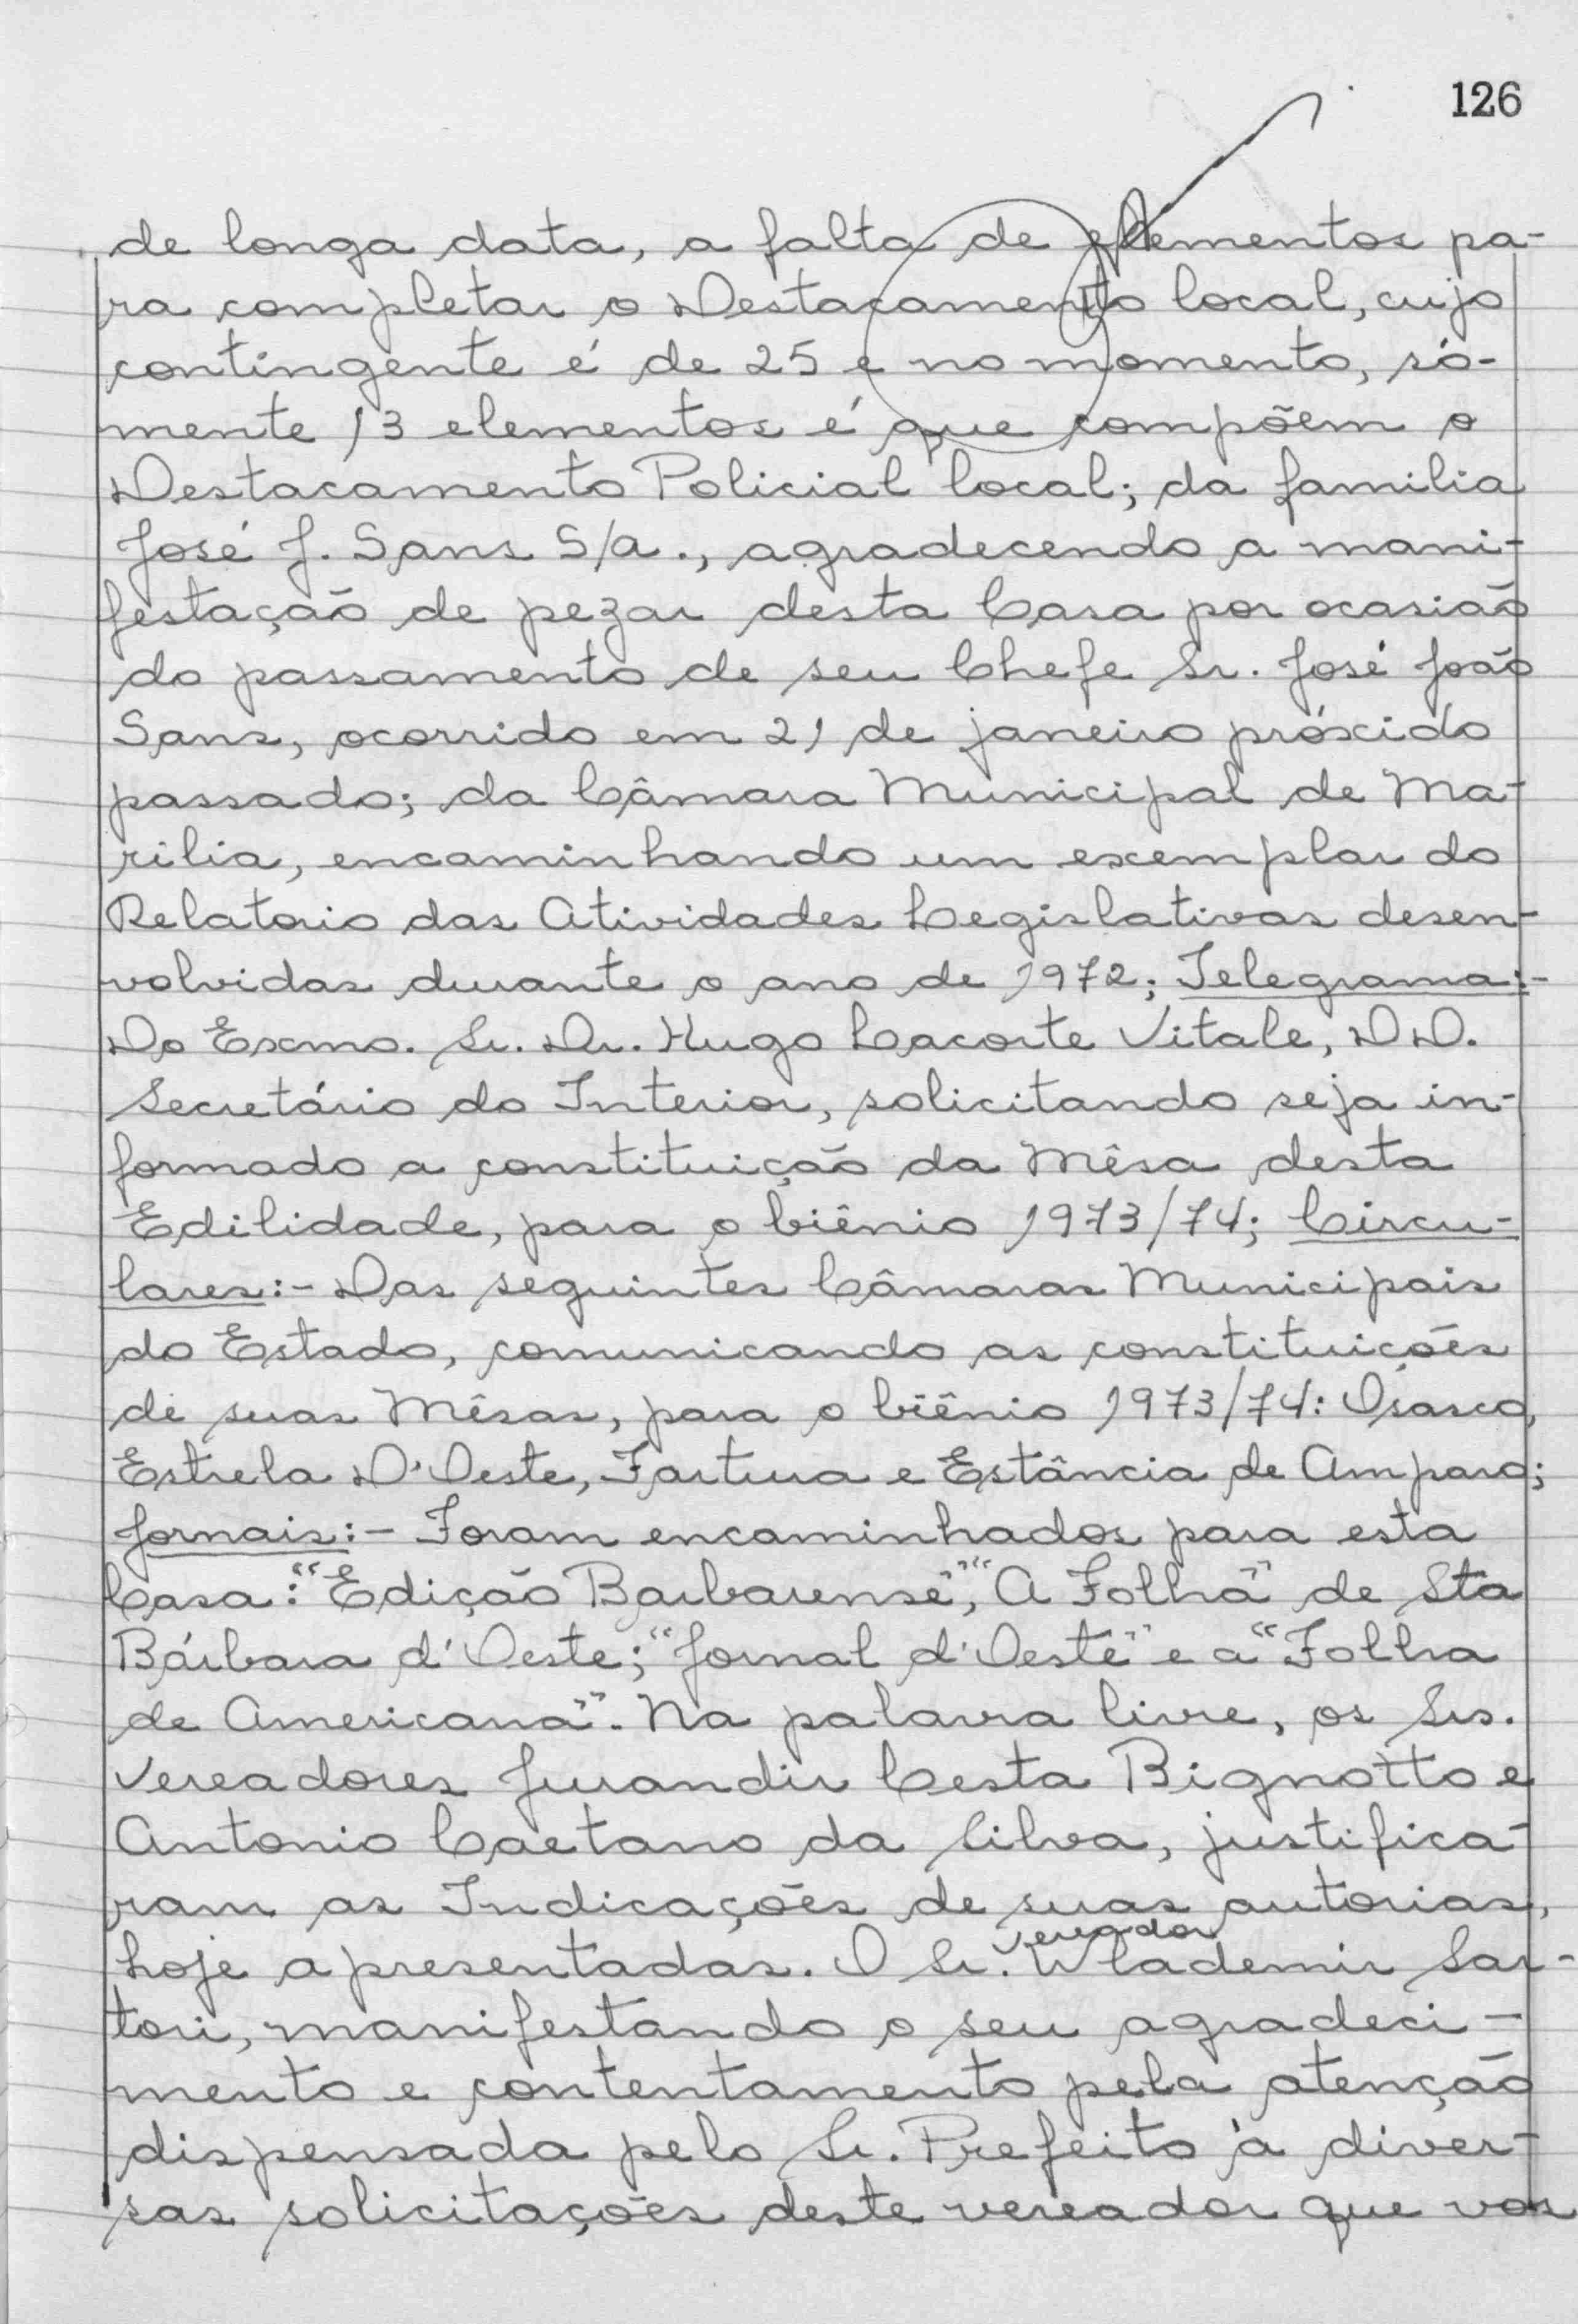 126
de longa data, a falta de elementos pa-
ra completar o Destacamento local, cujo
contingente é de 25 e no momento, sò-
mente 13 elementos é que compõem o
Destacamento Policial local; da familia
José J. Sans S/A., agradecendo a mani-
festação de pezar desta Casa por ocasião
do passamento de seu Chefe Sr. José João
Sans, ocorrido em 21 de janeiro próxido
passado; da Câmara Municipal de Ma-
rilia, encaminhando um exemplar do
Relatorio das Atividades Legislativas desen-
volvidas durante o ano de 1972; Telegrama:-
Do Exmo. Sr. Dr. Hugo Lacorte Vitale, DD.
Secretário do Interior, solicitando seja in-
formado a constituição da Mêsa desta
Edilidade, para o biênio 1973/74; Circu-
lares:- Das seguintes Câmaras Municipais
do Estado, comunicando as constituições
de suas Mêsas, para o biênio 1973/74: Osasco,
Estrela D'Oeste, Fartura e Estância de Amparo;
Jornais:- Foram encaminhados para esta
Casa: "Edição Barbarense", "A Folha" de Sta
Bárbara d'Oeste; "Jornal d'Oeste" e a "Folha
de Americana". Na palavra livre, os Srs.
Vereadores Jurandir Cesta Bignotto e
Antonio Caetano da Silva, justifica-
ram as Indicações de suas autorias,
hoje apresentadas. O Sr. Vereador Wlademir Sar-
tori, manifestando o seu agradeci-
mento e contentamento pela atenção
dispensada pelo Sr. Prefeito à diver-
sas solicitações deste vereador que vos